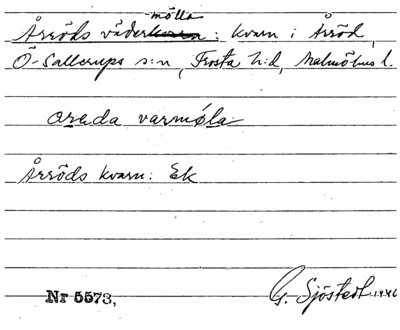 Årröds vädermölla: kvarn i Årröd,
Ö-Sallerups s:n, Frosta h:d, Malmöhus l.
areda varmøla
Årröds kvarn: Ek
Nr 5573,
G. Sjöstedt 1946